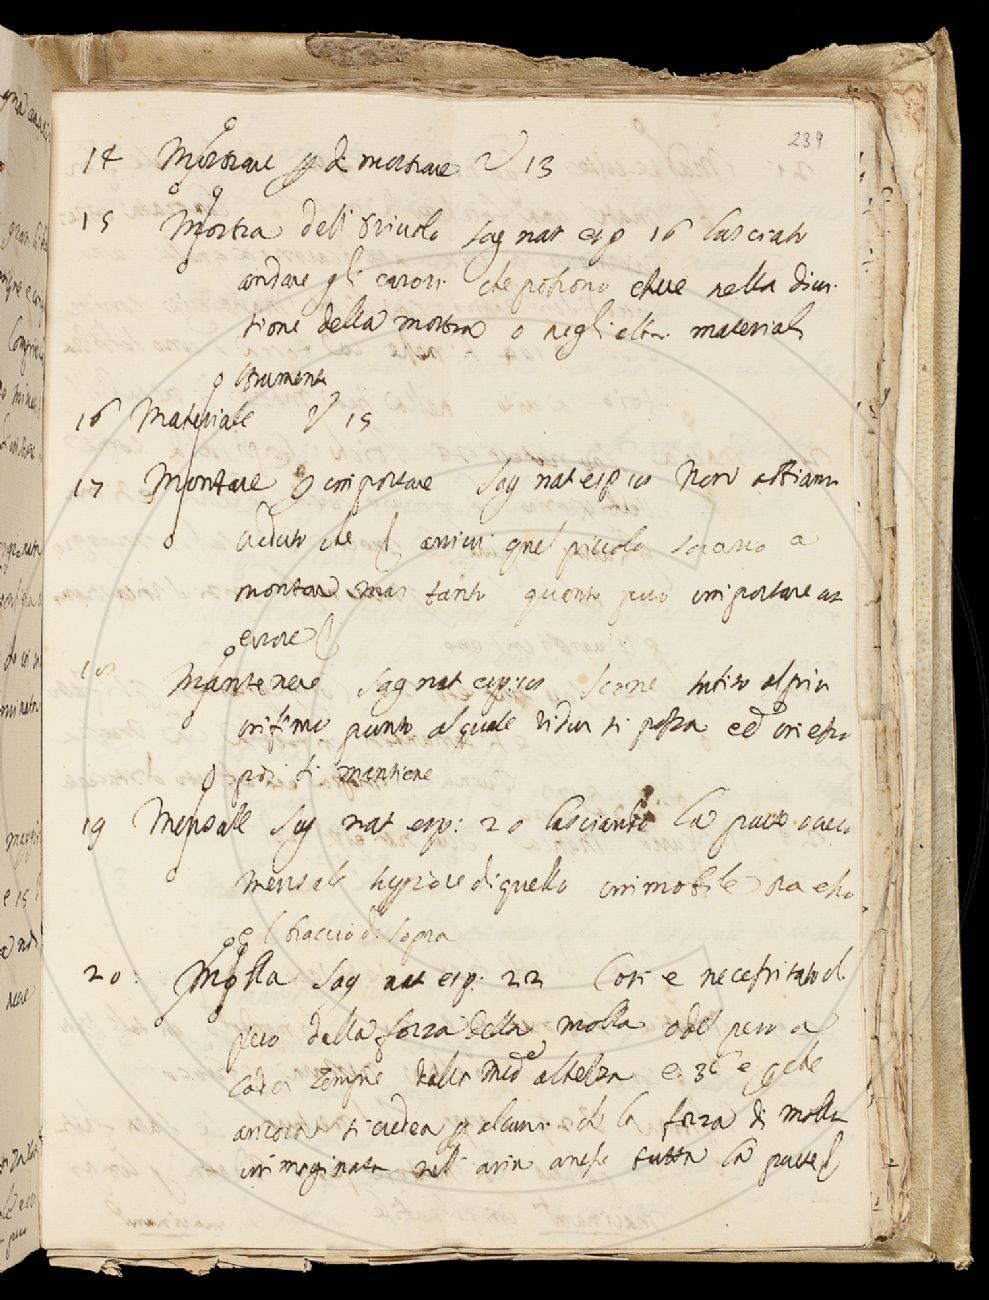 239
14 Mostrare p di mostrare V 13
15 Mostra dell'Oriuolo Sag nat esp 16 lasciato
andare gli errori che possono essere nella divi-
sione della mostra o negli altri materiali
strumenti
16 Materiale V 15
17 Montare p importare Sag nat esp Non abbiamo
creduto che arrivi quel piccolo svario a
montar mai tanto quanto può importare
errore
18 Mantenere Sag nat esp Scorse subito al
infimo punto al quale ridur si possa ed ivi
poi si mantiene
19 Mensale Sag nat esp: 20 lasciando la
mensale superiore di quello immobile
il braccio di sopra
20: Molla Sag nat esp. 22 Così è necessitato il
peso dalla forza della molla o del peso a
cader sempre dalla med.e altezza e. 36 e p che
ancora si credea p alcuni che la forza di molla
immaginata nell'aria avesse tutta la parte